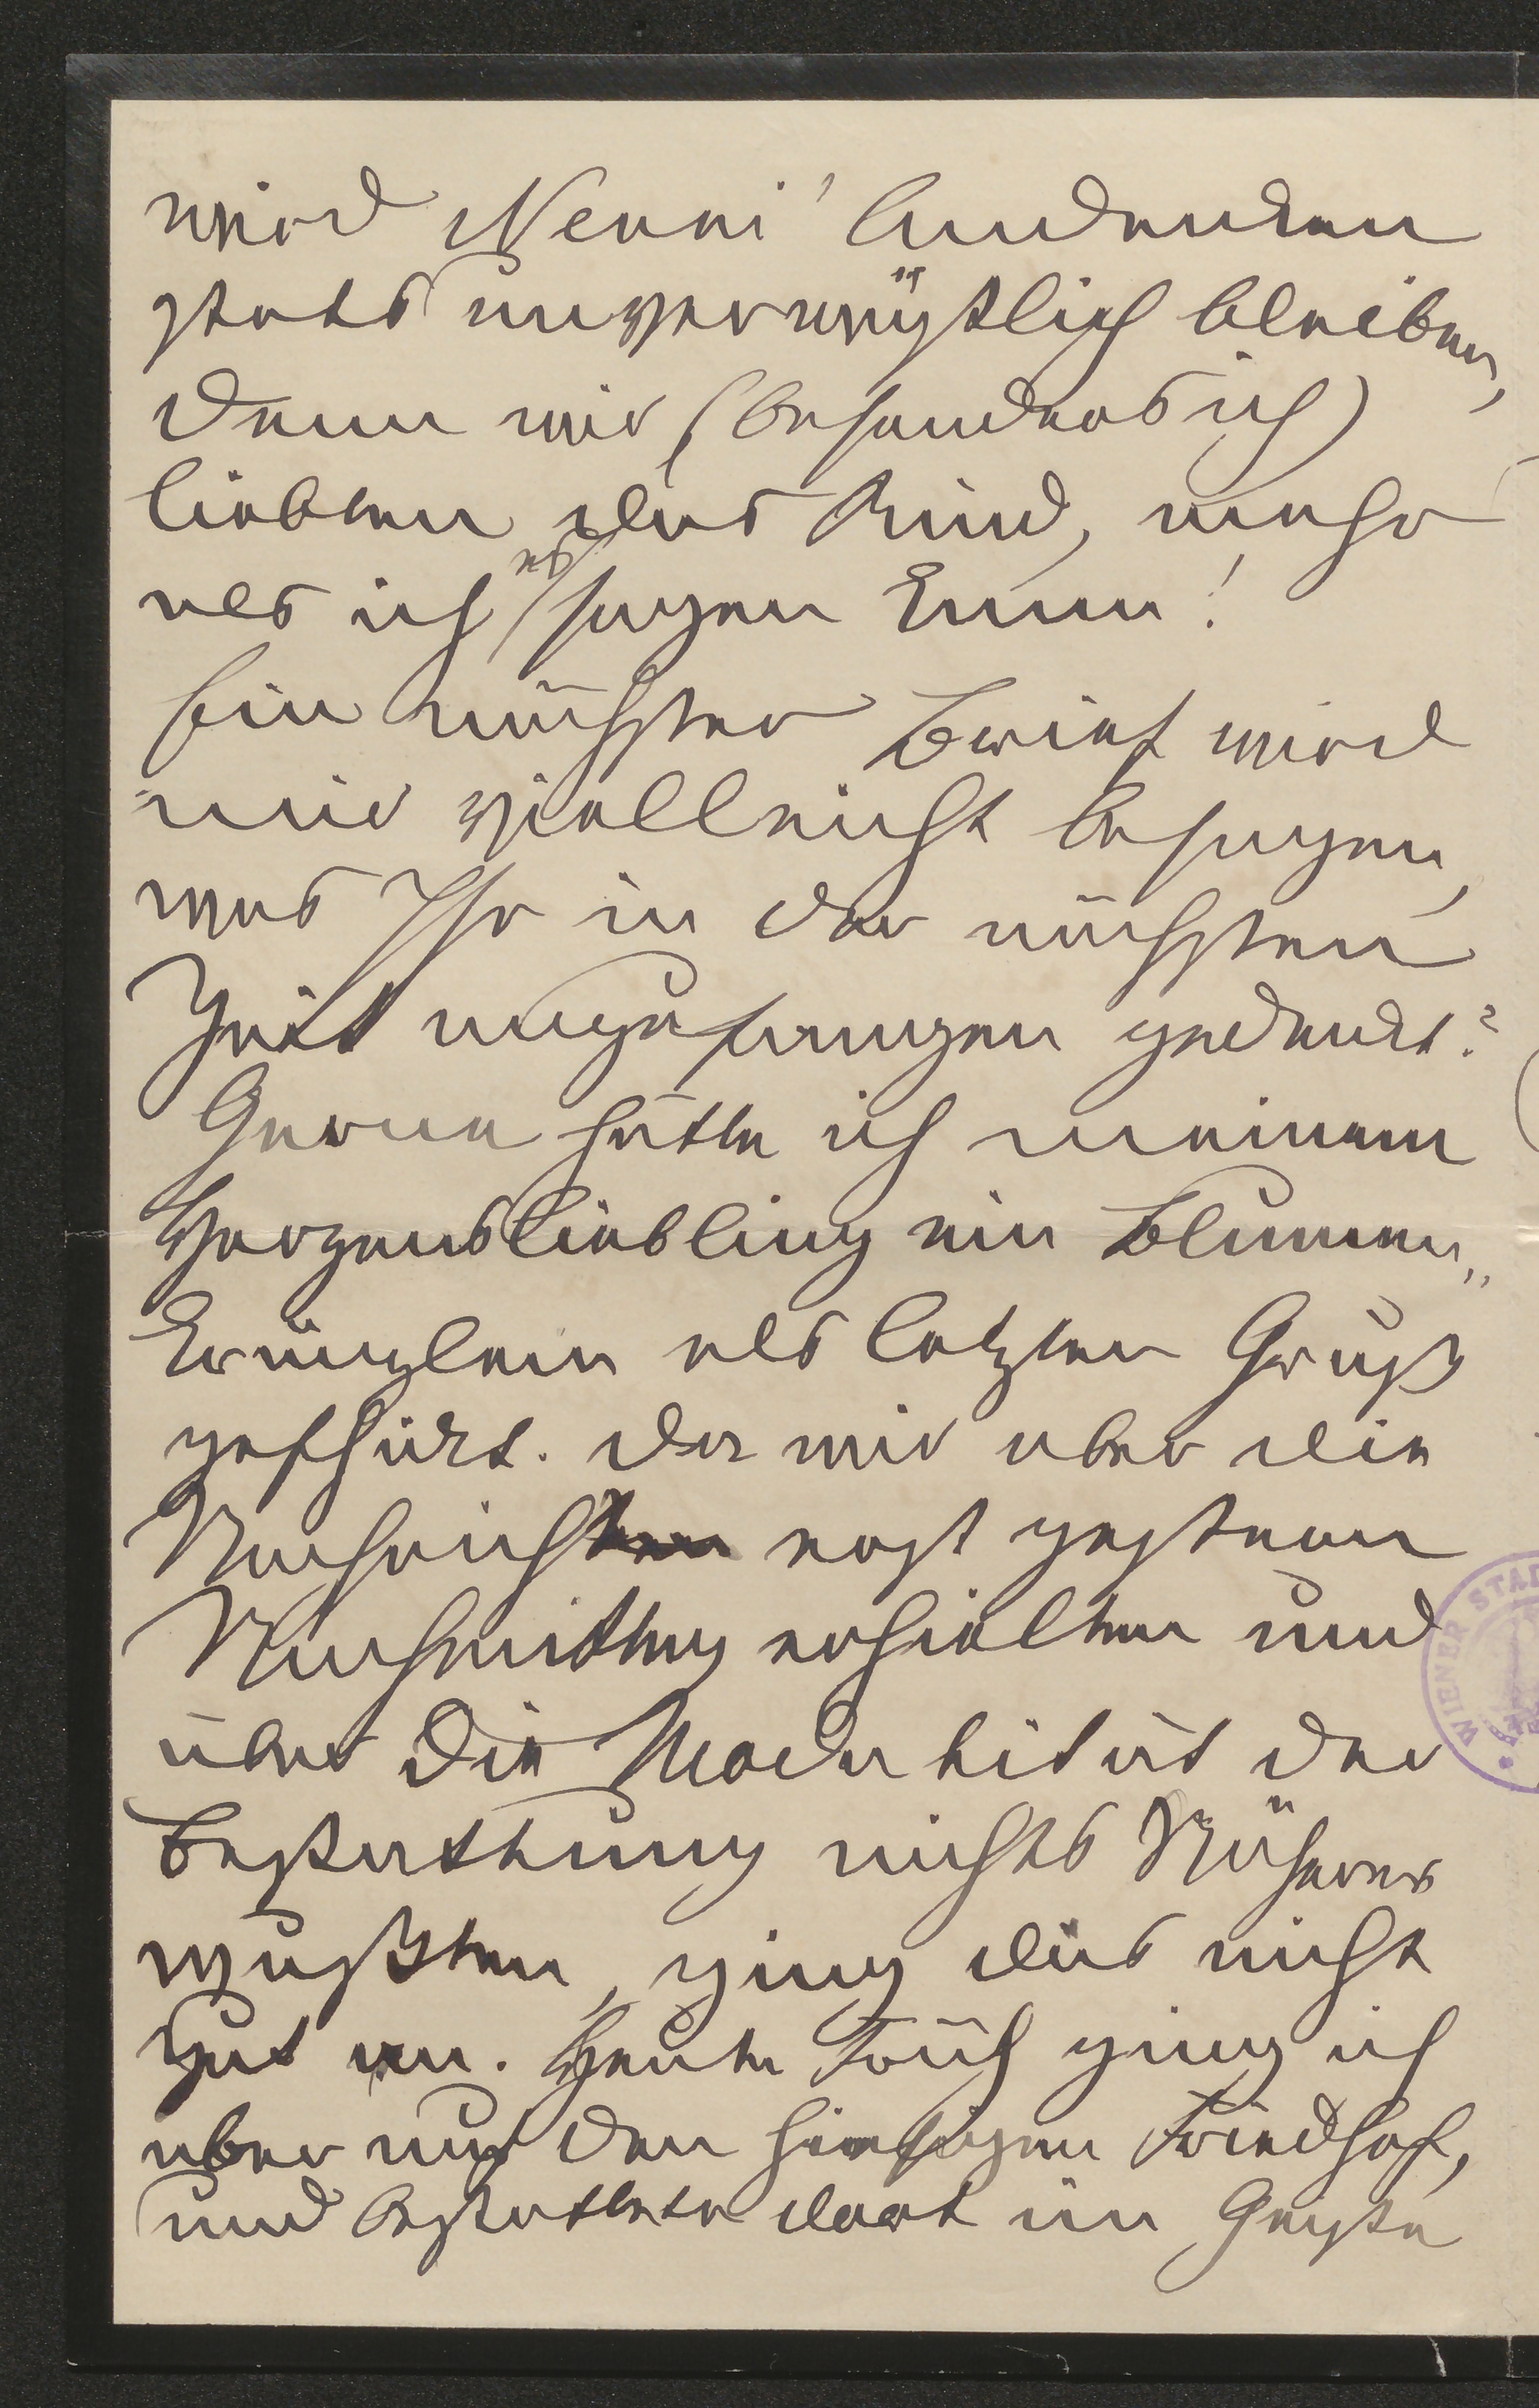 wird Nenni' Andenken
stets unverwüstlich bleiben,
denn wir (besonders ich)
liebten das Kind, mehr
als ich es sagen kann!
Ein nächster Brief wird
mir vielleicht besagen,
was Ihr in der nächsten
Zeit anzufangen gedenkt?
Gerne hätte ich meinem
Herzensliebling ein Blumen„
kränzlein als letzten Gruß
geschickt. Da wir aber die
Nachricht erst gestern
Nachmittag erhielten und
über die Modalität der
Bestattung nichts Näheres
wußten, ging dies nicht
gut an. Heute Früh ging ich
aber auf den hiesigen Friedhof,
und bestattete dort im Geiste
WIENER STAD